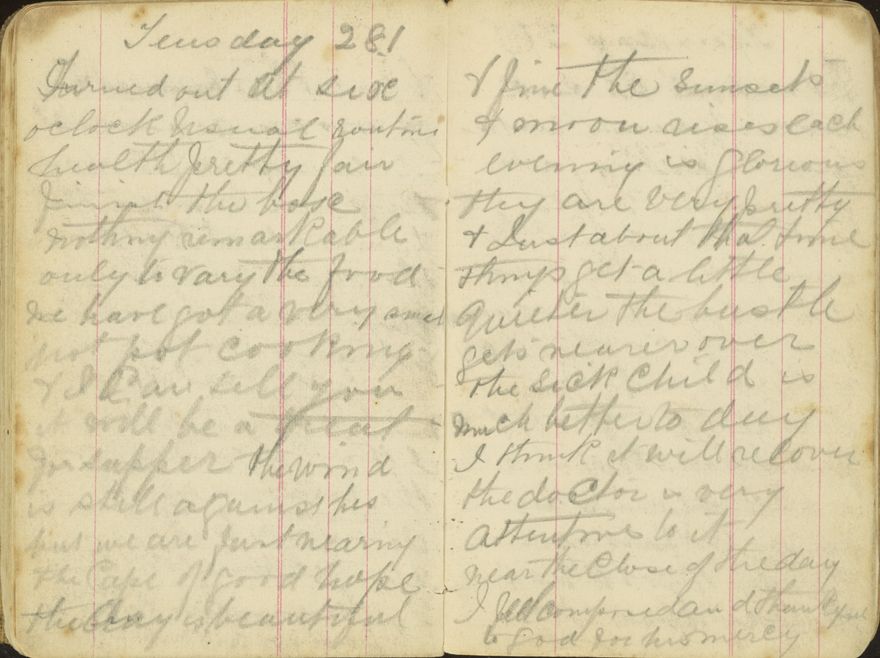 Teusday 28.1
Turned out at sixe
oclock usual routine
health pretty fair
finist the boxe
nothing remarkable
only to vary the food
we have got a very small
hot pot cooking
& I Can tell you
it will be a treat
for supper the wind
is still against hus
but we are Just nearing
the Cape of good hope
the day is beautiful
& fine the sunsets
& moon rises each
evening is glorious
they are very pretty
& Just about that time
things get a little
Quieter the bustle
gets nearer over
the sick child is
much better to day
I think it will recover
the doctor is very
attentive to it
near the Close of the day
I fell composed and thankful
to god for his mercy